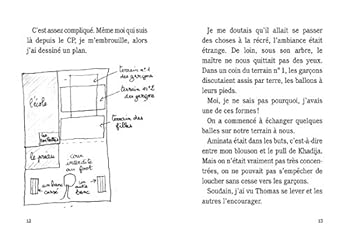 C'est assez compliqué. Même moi qui suis
là depuis le CP, je m'embrouille, alors
j'ai dessiné un plan.
terrain n°1
des garçons
terrain n°2
des garçons
terrain des
filles
l'école
les toilettes
le préau
cour
interdite
au foot
un banc
cassé
un autre
banc
12
Je me doutais qu'il allait se passer
des choses à la récré, l'ambiance était
étrange. De loin, sous son arbre, le
maître ne nous quittait pas des yeux.
Dans un coin du terrain n° 1, les garçons
discutaient assis par terre, les ballons à
leurs pieds.
Moi, je ne sais pas pourquoi, j'avais
une de ces formes !
On a commencé à échanger quelques
balles sur notre terrain à nous.
Aminata était dans les buts, c'est-à-dire
entre mon blouson et le pull de Khadija.
Mais on n'était vraiment pas très concen-
trées, on ne pouvait pas s'empêcher de
loucher sans cesse vers les garçons.
Soudain, j'ai vu Thomas se lever et les
autres l'encourager.
13